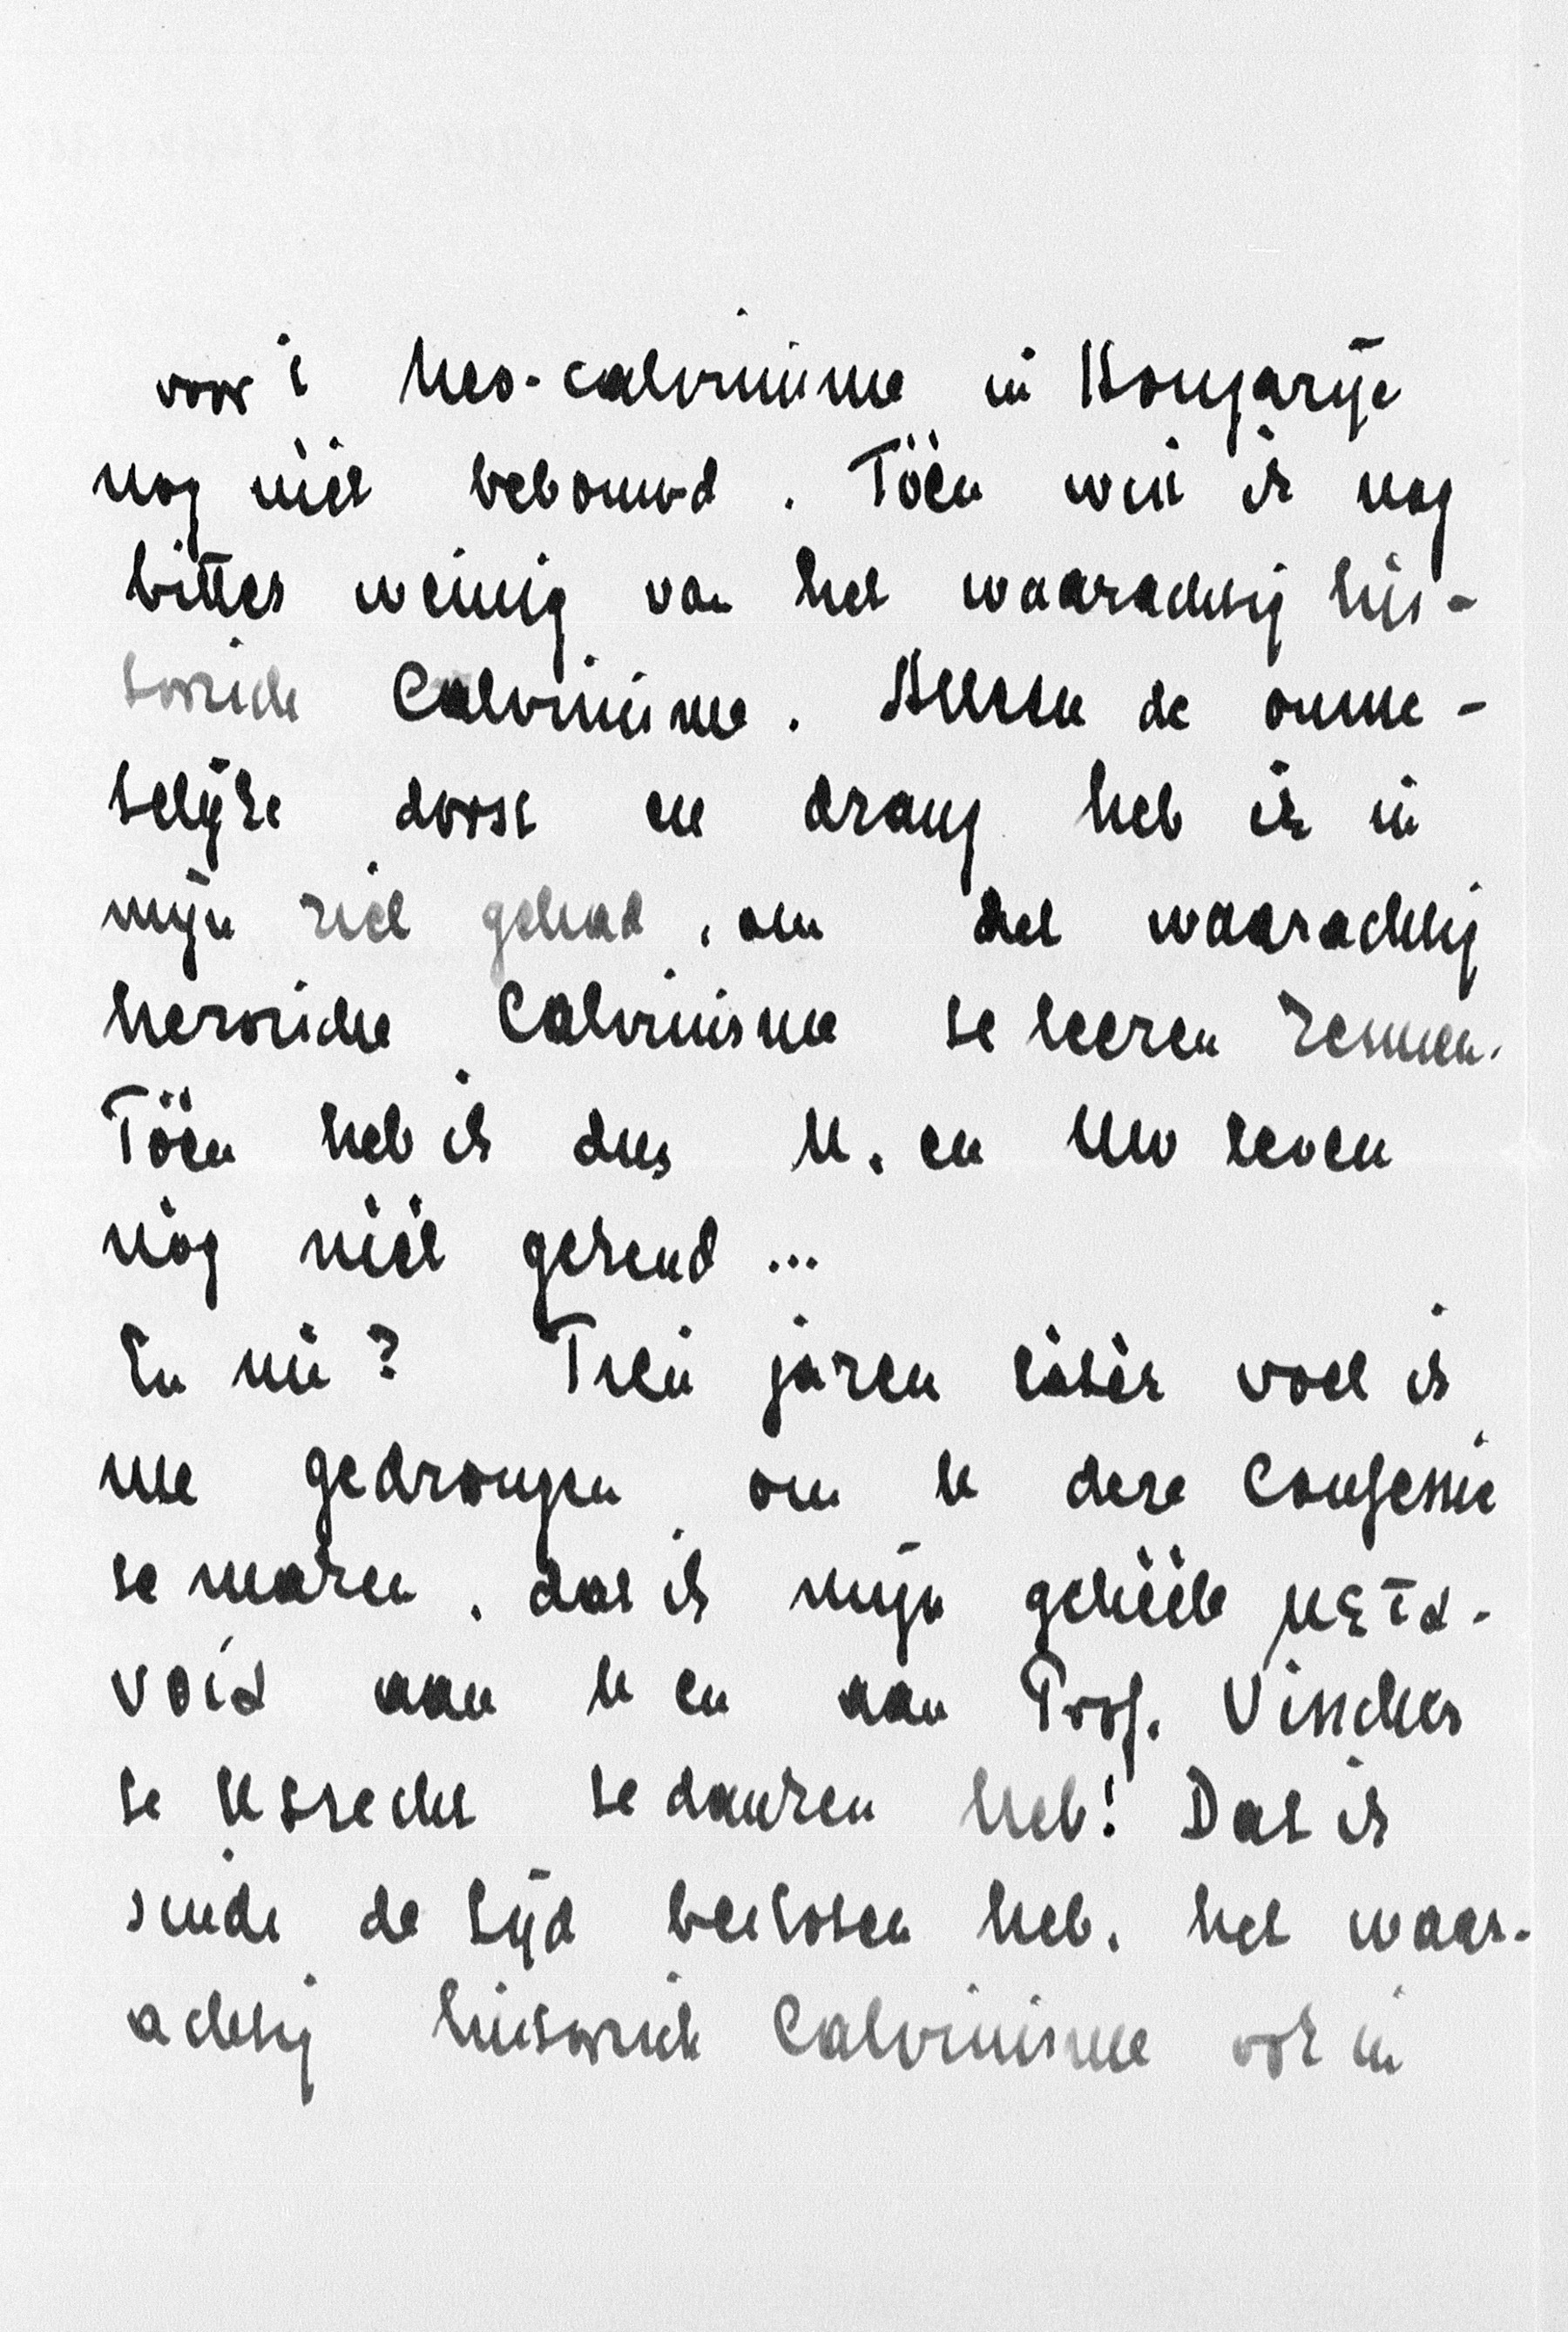 voor 't Neo-calvinisme in Hongarije
nog niet bebouwd. Tóén wist ik nog
bitter weinig van het waarachtig his-
torische Calvinisme. Alleen de onme-
telijke dorst en drang heb ik in
mijn ziel gehad, om het waarachtig
heroische Calvinisme te leeren kennen.
Tóén heb ik dus U. en Uw leven
nóg níét gekend ...
En nu? Tien jaren láter voel ik
me gedrongen om U deze confessie
te maken, dat ik mijn gehééle μετα-
νοια aan U en aan Prof. Visscher
te Utrecht te danken heb! Dat ik
sinds de tijd besloten heb, het waar-
achtig historisch Calvinisme ook in